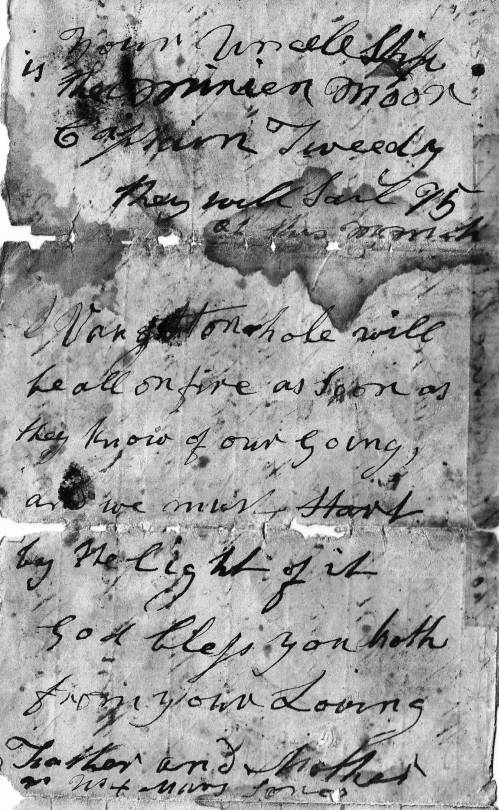 your Uncele Ship
is the miniera Moor
Captain Tweedy
they will Sail 25
of this month
hole will
be all on fire as Soon as
they know of our Going,
and we must Start
by the light of it
God bless you both
from your Loving
Father and Mother
Jones